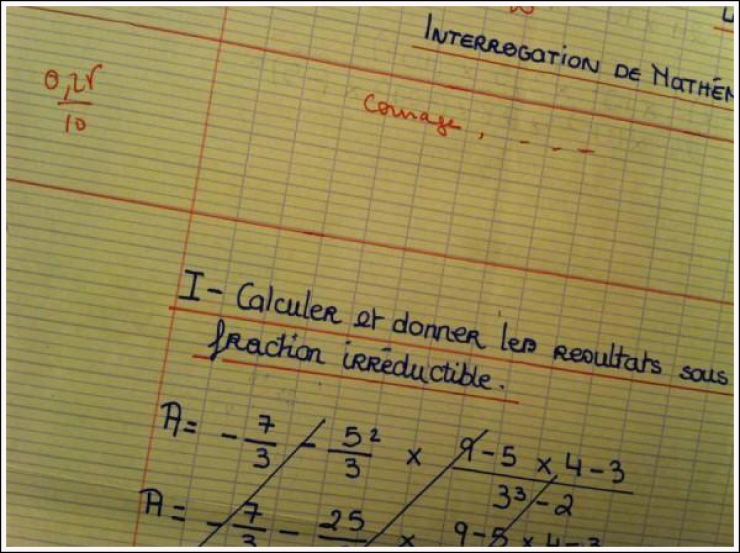 INTERROGATION DE MATHÉM
0,25
10
Courage, - - -
I - Calculer et donner les resultats sous
fraction irréductible.
A = - 7/3 - 5²/3 × 9-5×4-3 / 3³-2
A = - 7/3 - 25 × 9-5×4-3